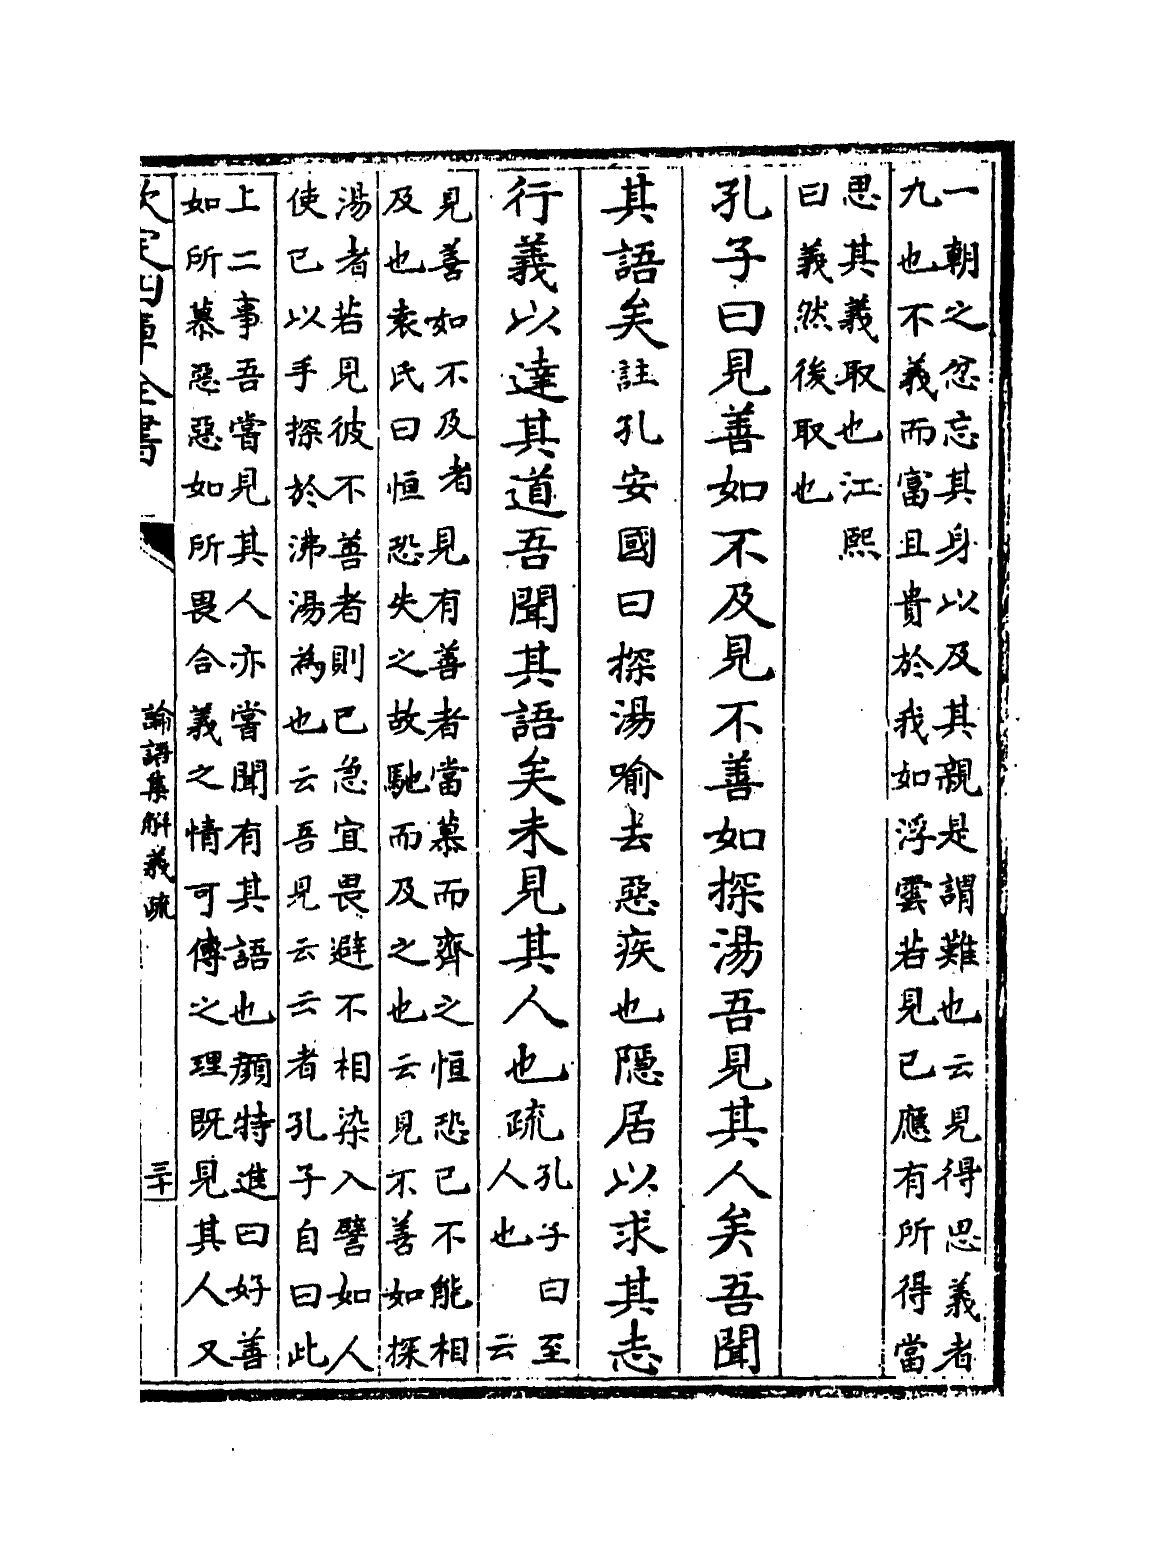 一朝之忿忘其身以及其親是謂難也云見得思義者
九也不義而富且貴於我如浮雲若見己應有所得當
思其義取也江熙
曰義然後取也
孔子曰見善如不及見不善如探湯吾見其人矣吾聞
其語矣註孔安國曰探湯喻去惡疾也隱居以求其志
行義以達其道吾聞其語矣未見其人也疏
孔子曰至
人也 云
見善如不及者見有善者當慕而齊之恒恐己不能相
及也袁氏曰恒恐失之故馳而及之也云見不善如探
湯者若見彼不善者則己急宜畏避不相染入譬如人
使己以手探於沸湯為也云吾見云云者孔子自曰此
上二事吾嘗見其人亦嘗聞有其語也顏特進曰好善
如所慕惡惡如所畏合義之情可傳之理既見其人又
欽定四庫全書
論語集解義疏
三十